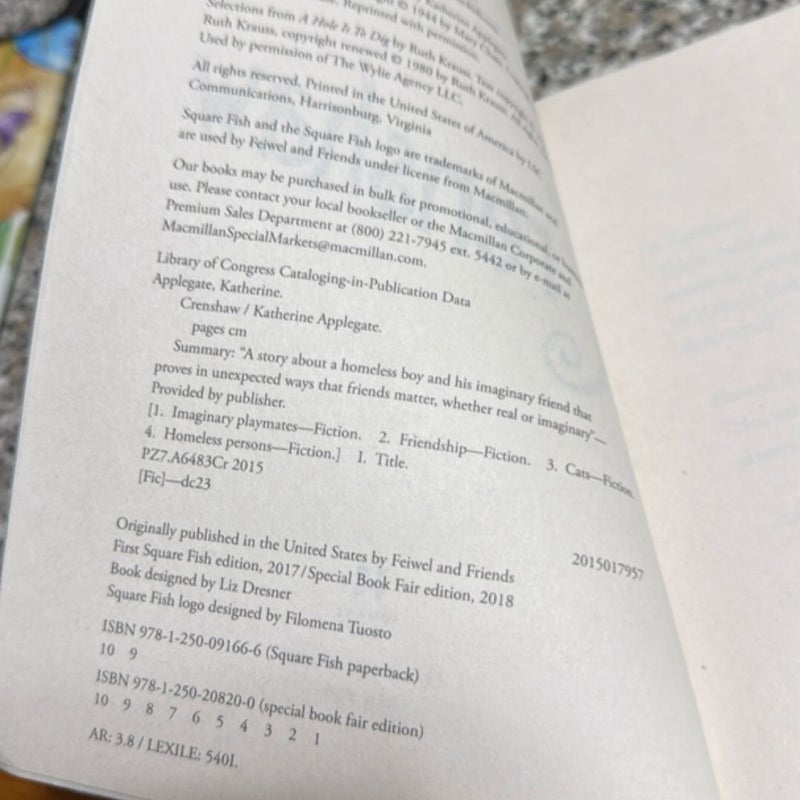 © 1944 by Mary Chase.
Reprinted with permission.
Selections from A Hole Is To Dig by Ruth Krauss. Text copyright
Ruth Krauss, copyright renewed © 1980 by Ruth Krauss. All
Used by permission of The Wylie Agency LLC.
All rights reserved. Printed in the United States of America by LSC
Communications, Harrisonburg, Virginia
Square Fish and the Square Fish logo are trademarks of Macmillan and
are used by Feiwel and Friends under license from Macmillan.
Our books may be purchased in bulk for promotional, educational, or
use. Please contact your local bookseller or the Macmillan Corporate and
Premium Sales Department at (800) 221-7945 ext. 5442 or by e-mail at
MacmillanSpecialMarkets@macmillan.com.
Library of Congress Cataloging-in-Publication Data
Applegate, Katherine.
Crenshaw / Katherine Applegate.
pages cm
Summary: "A story about a homeless boy and his imaginary friend that
proves in unexpected ways that friends matter, whether real or imaginary"—
Provided by publisher.
[1. Imaginary playmates—Fiction. 2. Friendship—Fiction. 3. Cats—Fiction.
4. Homeless persons—Fiction.] I. Title.
PZ7.A6483Cr 2015
[Fic]—dc23
2015017957
Originally published in the United States by Feiwel and Friends
First Square Fish edition, 2017/Special Book Fair edition, 2018
Book designed by Liz Dresner
Square Fish logo designed by Filomena Tuosto
ISBN 978-1-250-09166-6 (Square Fish paperback)
10 9
ISBN 978-1-250-20820-0 (special book fair edition)
10 9 8 7 6 5 4 3 2 1
AR: 3.8 / LEXILE: 540L